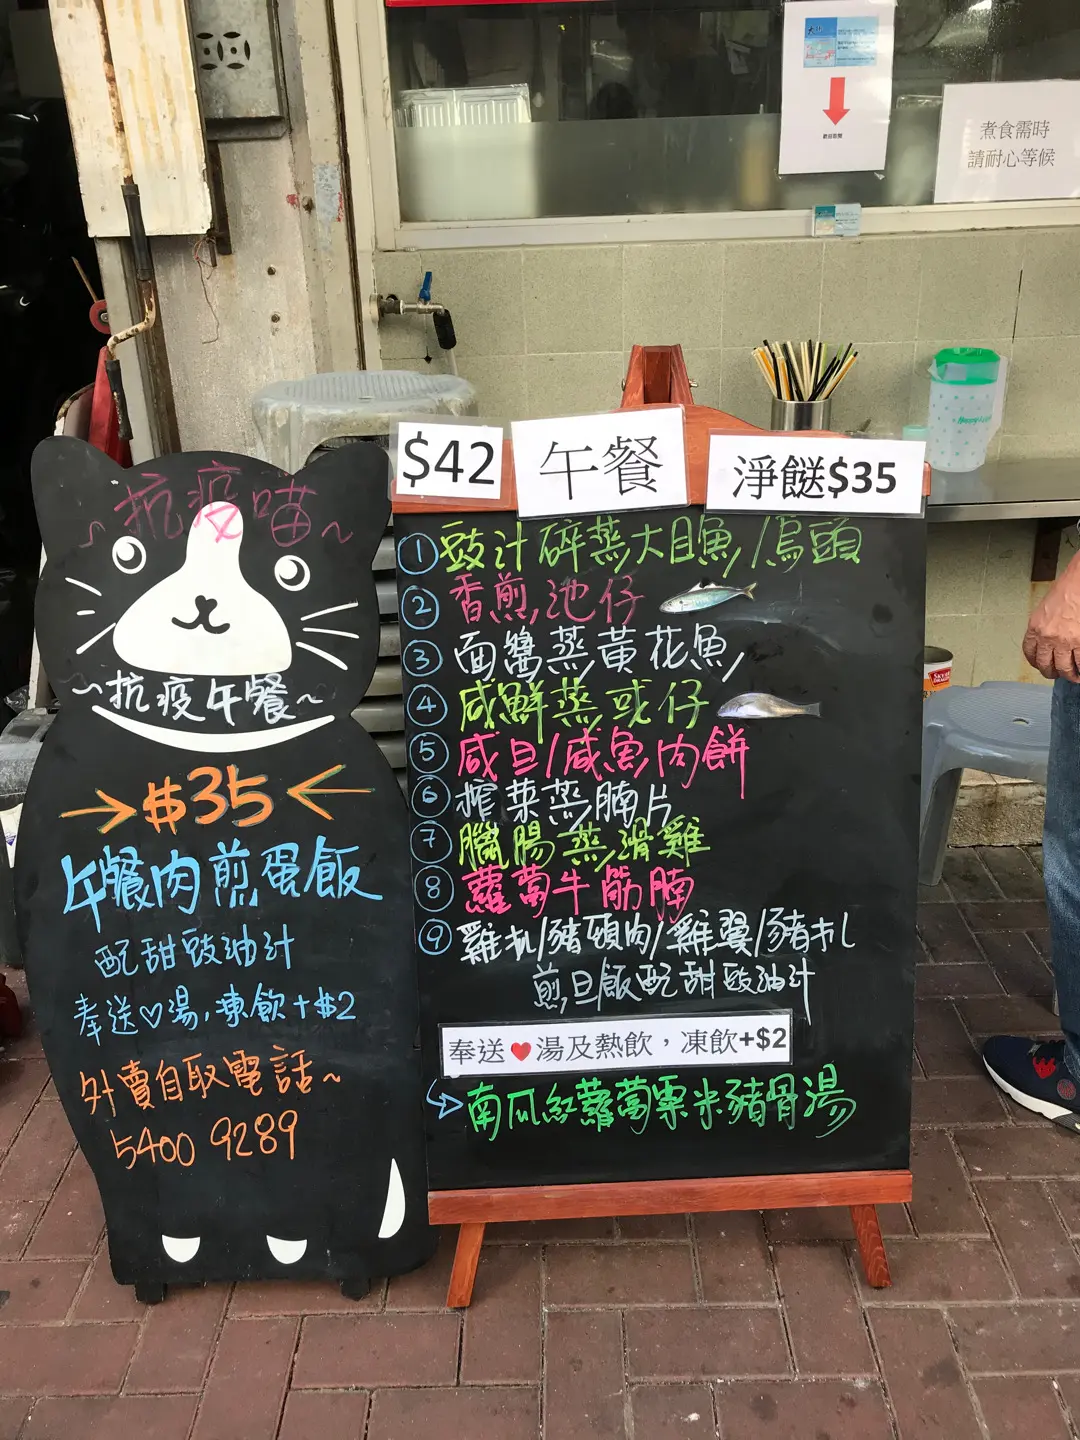 煮食需時
請耐心等候
~抗疫喵~
~抗疫午餐~
$35
午餐肉煎蛋飯
配甜豉油汁
奉送♡湯,凍飲+$2
外賣自取電話~
5400 9289
$42
午餐
淨餸$35
① 豉汁碎蒸大目魚/烏頭
② 香煎池仔
③ 面醬蒸黃花魚
④ 咸鮮蒸或仔
⑤ 咸旦/咸魚肉餅
⑥ 榨菜蒸腩片
⑦ 臘腸蒸滑雞
⑧ 蘿蔔牛筋腩
⑨ 雞扎/豬頸肉/雞翼/豬扎
煎旦飯配甜豉油汁
奉送♥湯及熱飲,凍飲+$2
南瓜紅蘿蔔粟米豬骨湯